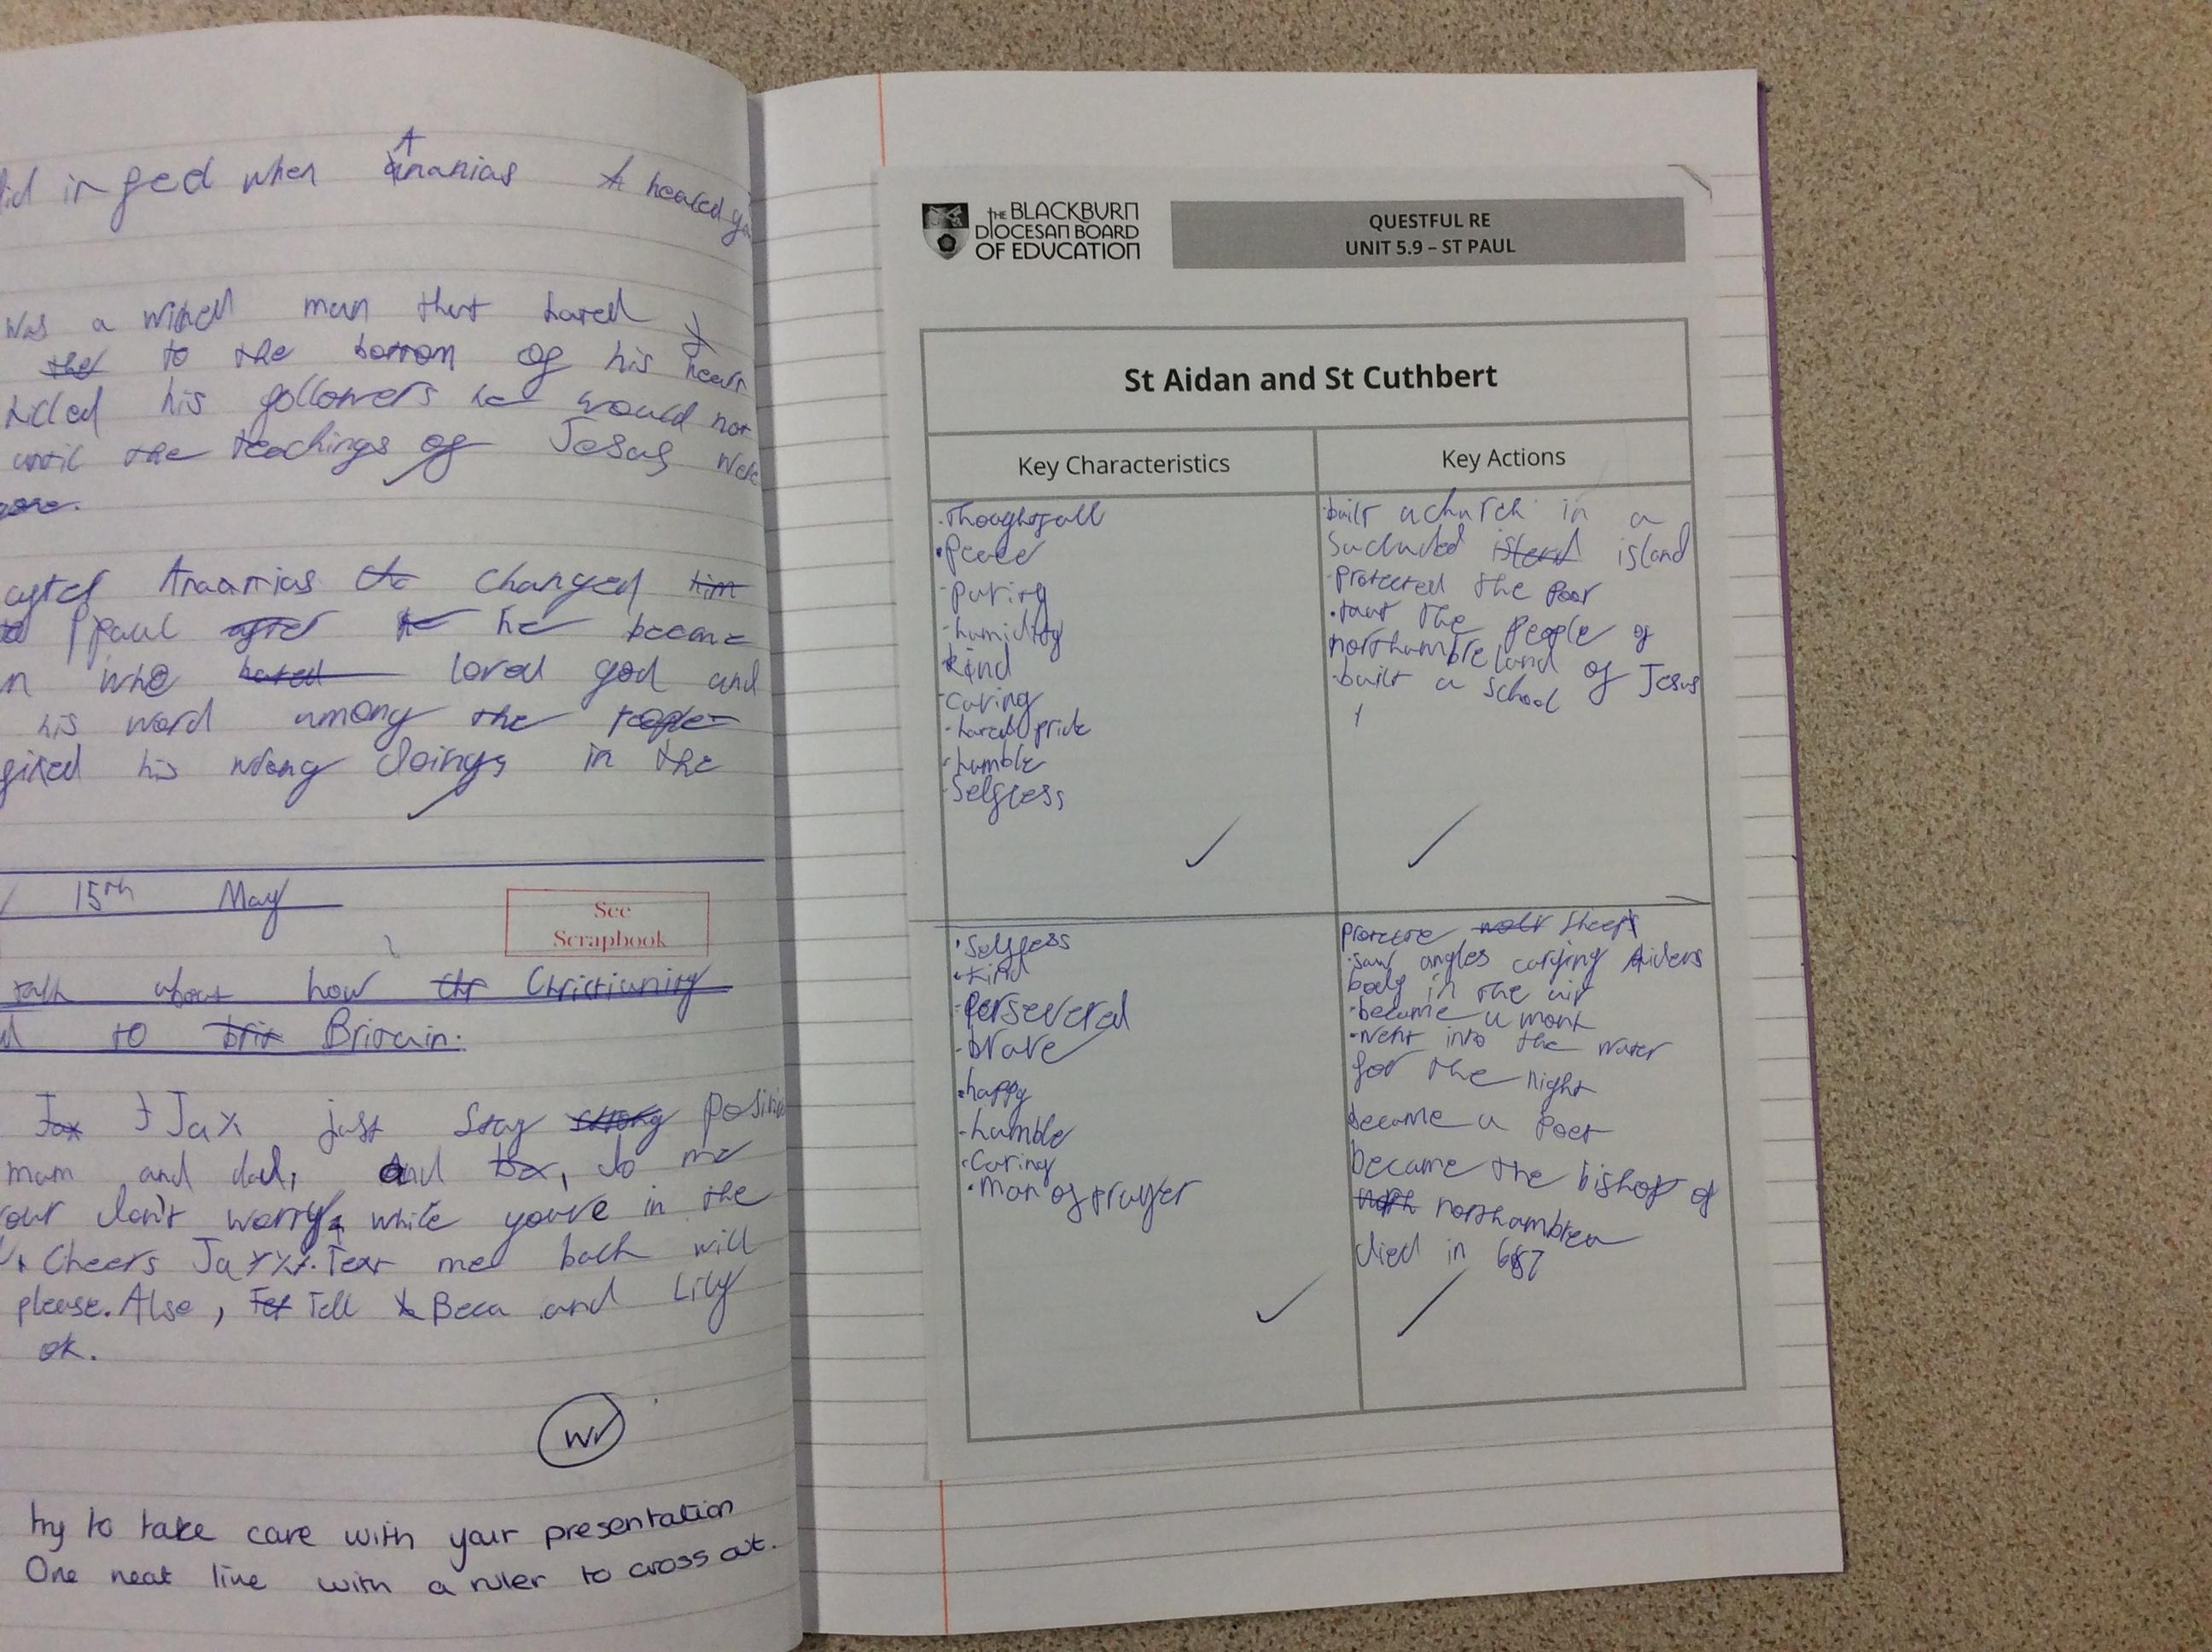 in ged when Ananias healed
was a wiked man that hated
the to the bottom of his heart
killed his followers he would not
until the teachings of Jesus were
gone.
after Anaanias the changed him
Ppaul after he he became
who hated loved god and
his word among the people
fixed his wrong doings in the
15th May
See
Scrapbook
talk about how the Christianity
to brit Britain.
Jax Jax just stay strong
mam and dad, and do me
don't worry, while youre in the
Cheers Jaxxx. Text me back will
please. Also, Tell Beca and Lily
ok.
try to take care with your presentation
One neat line with a ruler to cross out.
THE BLACKBURN
DIOCESAN BOARD
OF EDUCATION
QUESTFUL RE
UNIT 5.9 – ST PAUL
St Aidan and St Cuthbert
Key Characteristics
Key Actions
·Thoughtfull
·Peace
-purity
-humility
-kind
-caring
-hated pride
-humble
-Selfless
·built a church in a
Sucluded island island
-protected the poor
·taut the people of
northumbreland of Jesus
-built a school
·Selfless
·kind
-Persevered
-brave
·happy
-humble
·Caring
·man of prayer
protecte sheep
·saw angles carying Aidens
body in the air
·became a monk
·went into the water
for the night
became a Poet
became the bishop of
north northambrea
died in 687